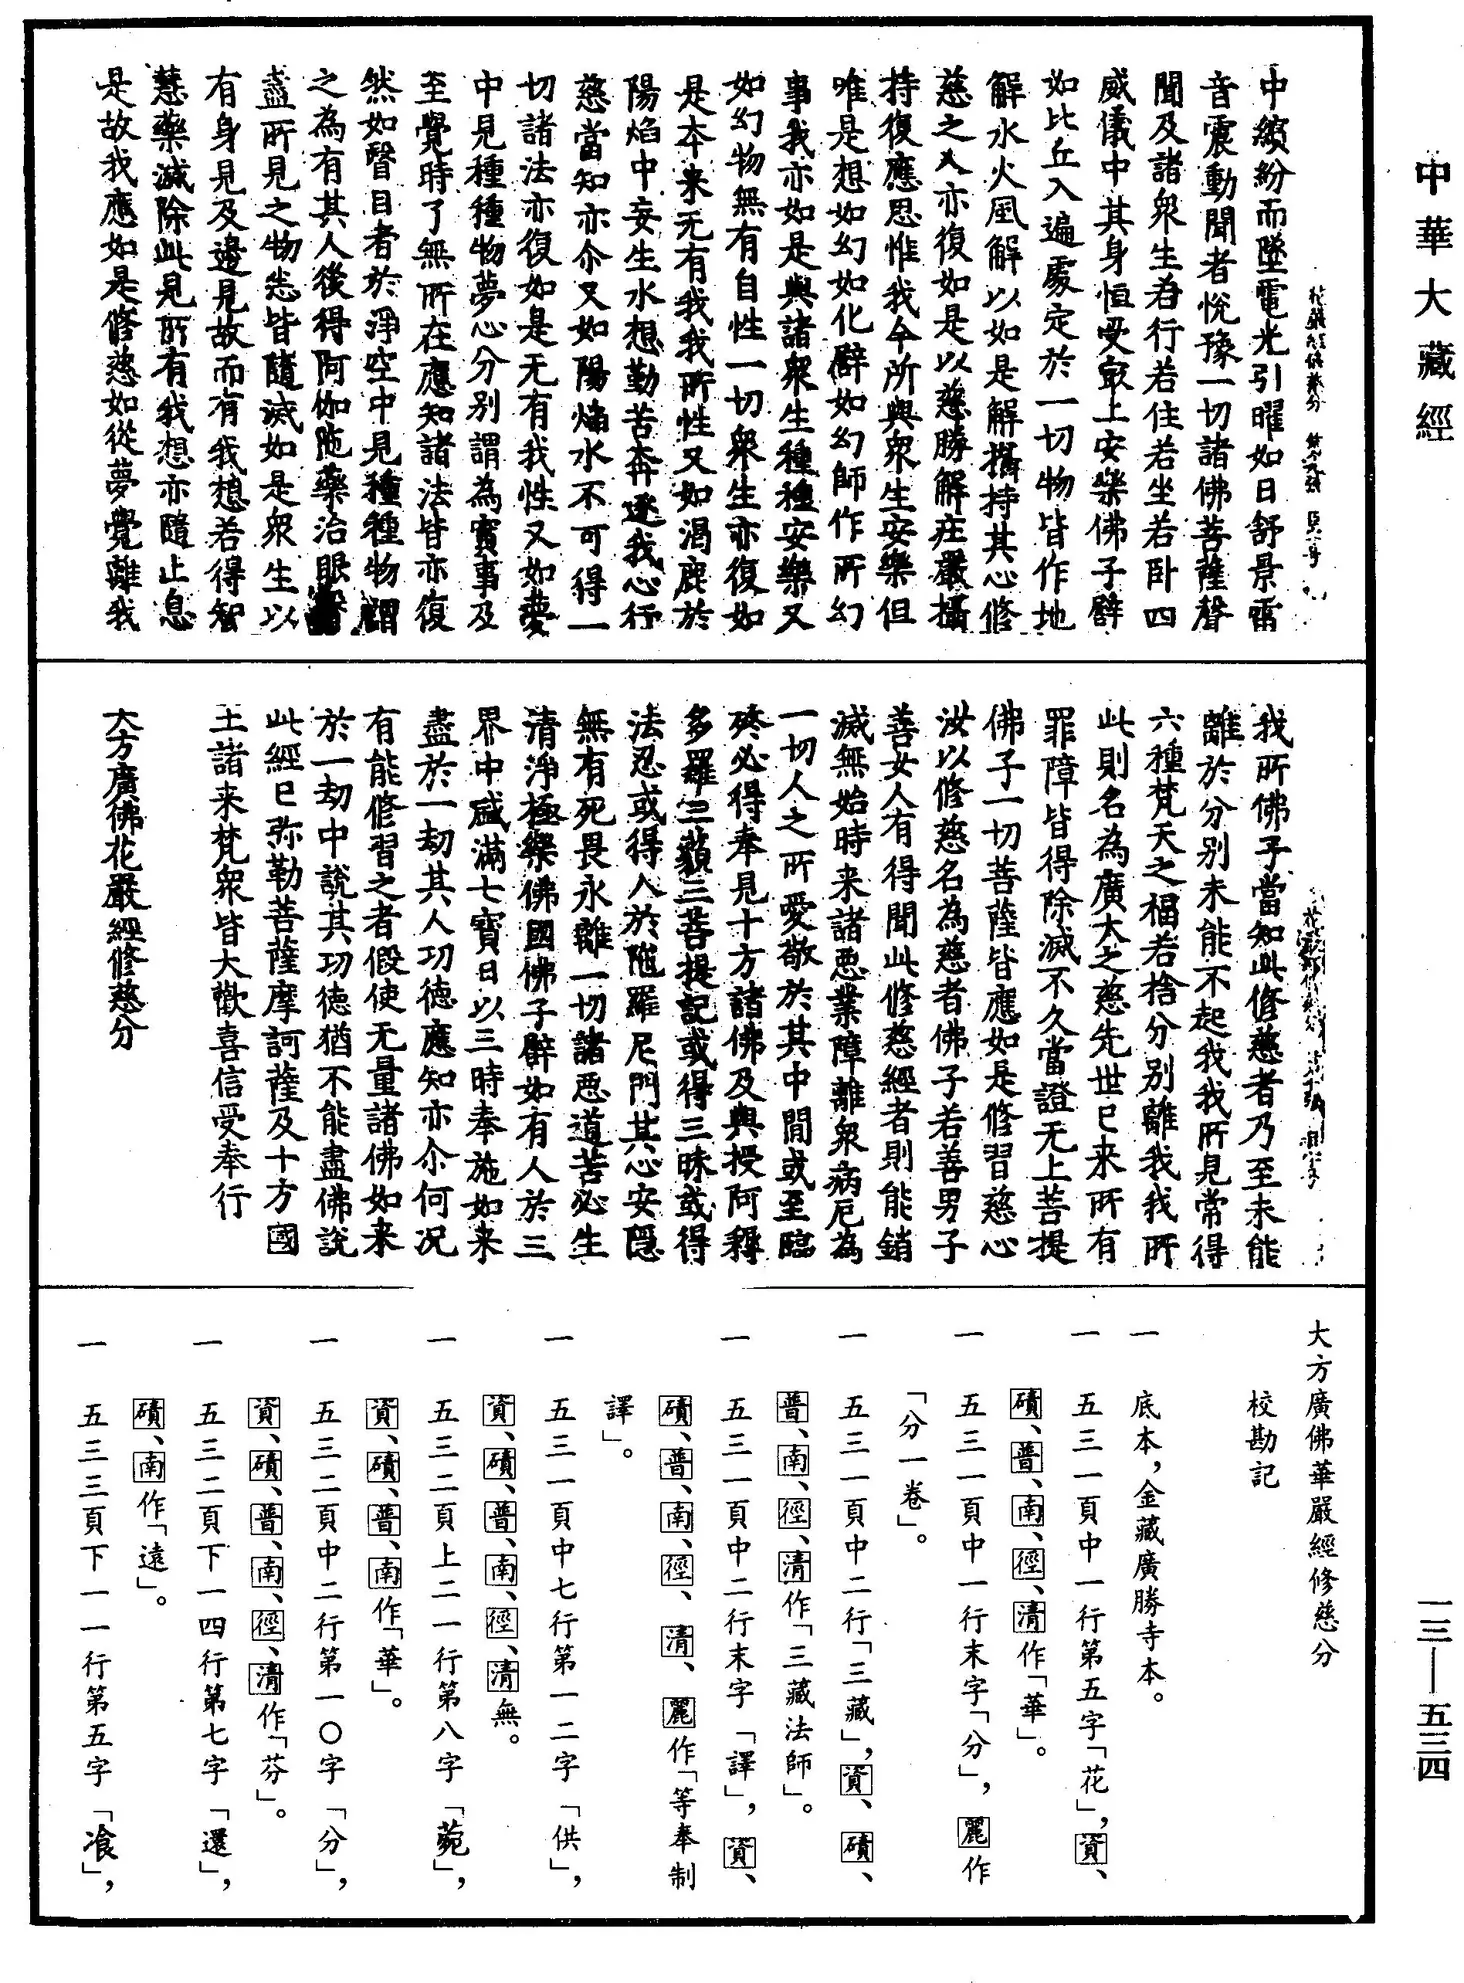 中華大藏經
中繽紛而墜電光引曜如日舒景雷
音震動聞者悅豫一切諸佛菩薩聲
聞及諸衆生若行若住若坐若卧四
威儀中其身恒受寂上安樂佛子譬
如比丘入遍處定於一切物皆作地
解水火風解以如是解攝持其心修
慈之人亦復如是以慈勝解莊嚴攝
持復應思惟我今所與衆生安樂但
唯是想如幻如化譬如幻師作所幻
事我亦如是與諸衆生種種安樂又
如幻物無有自性一切衆生亦復如
是本来无有我我所性又如渴鹿於
陽焰中妄生水想勤苦奔逐我心行
慈當知亦尒又如陽焔水不可得一
切諸法亦復如是无有我性又如夢
中見種種物夢心分别謂為實事及
至覺時了無所在應知諸法皆亦復
然如瞖目者於淨空中見種種物謂
之為有其人後得阿伽陁藥治眼瞖
盡所見之物悉皆隨滅如是衆生以
有身見及邊見故而有我想若得智
慧藥滅除此見所有我想亦隨止息
是故我應如是修慈如從夢覺離我
我所佛子當知此修慈者乃至未能
離於分别未能不起我我所見常得
六種梵天之福若捨分别離我我所
此則名為廣大之慈先世已来所有
罪障皆得除滅不久當證无上菩提
佛子一切菩薩皆應如是修習慈心
汝以修慈名為慈者佛子若善男子
善女人有得聞此修慈經者則能銷
滅無始時来諸惡業障離衆病厄為
一切人之所愛敬於其中間或至臨
終必得奉見十方諸佛及與授阿耨
多羅三藐三菩提記或得三昧或得
法忍或得入於陁羅尼門其心安隱
無有死畏永離一切諸惡道苦必生
清淨極樂佛國佛子譬如有人於三
界中盛滿七寶日以三時奉施如来
盡於一劫其人功德應知亦尒何况
有能修習之者假使无量諸佛如来
於一劫中說其功德猶不能盡佛說
此經已弥勒菩薩摩訶薩及十方國
土諸来梵衆皆大歡喜信受奉行
大方廣佛花嚴經修慈分
大方廣佛華嚴經修慈分
校勘記
一　底本，金藏廣勝寺本。
一　五三一頁中一行第五字「花」，資、
磧、普、南、徑、清作「華」。
一　五三一頁中一行末字「分」，麗作
「分一卷」。
一　五三一頁中二行「三藏」，資、磧、
普、南、徑、清作「三藏法師」。
一　五三一頁中二行末字「譯」，資、
磧、普、南、徑、清、麗作「等奉制
譯」。
一　五三一頁中七行第一二字「供」，
資、磧、普、南、徑、清無。
一　五三二頁上二一行第八字「菀」，
資、磧、普、南作「華」。
一　五三二頁中二行第一〇字「分」，
資、磧、普、南、徑、清作「芬」。
一　五三二頁下一四行第七字「還」，
磧、南作「遠」。
一　五三三頁下一一行第五字「飡」，
一三—五三四